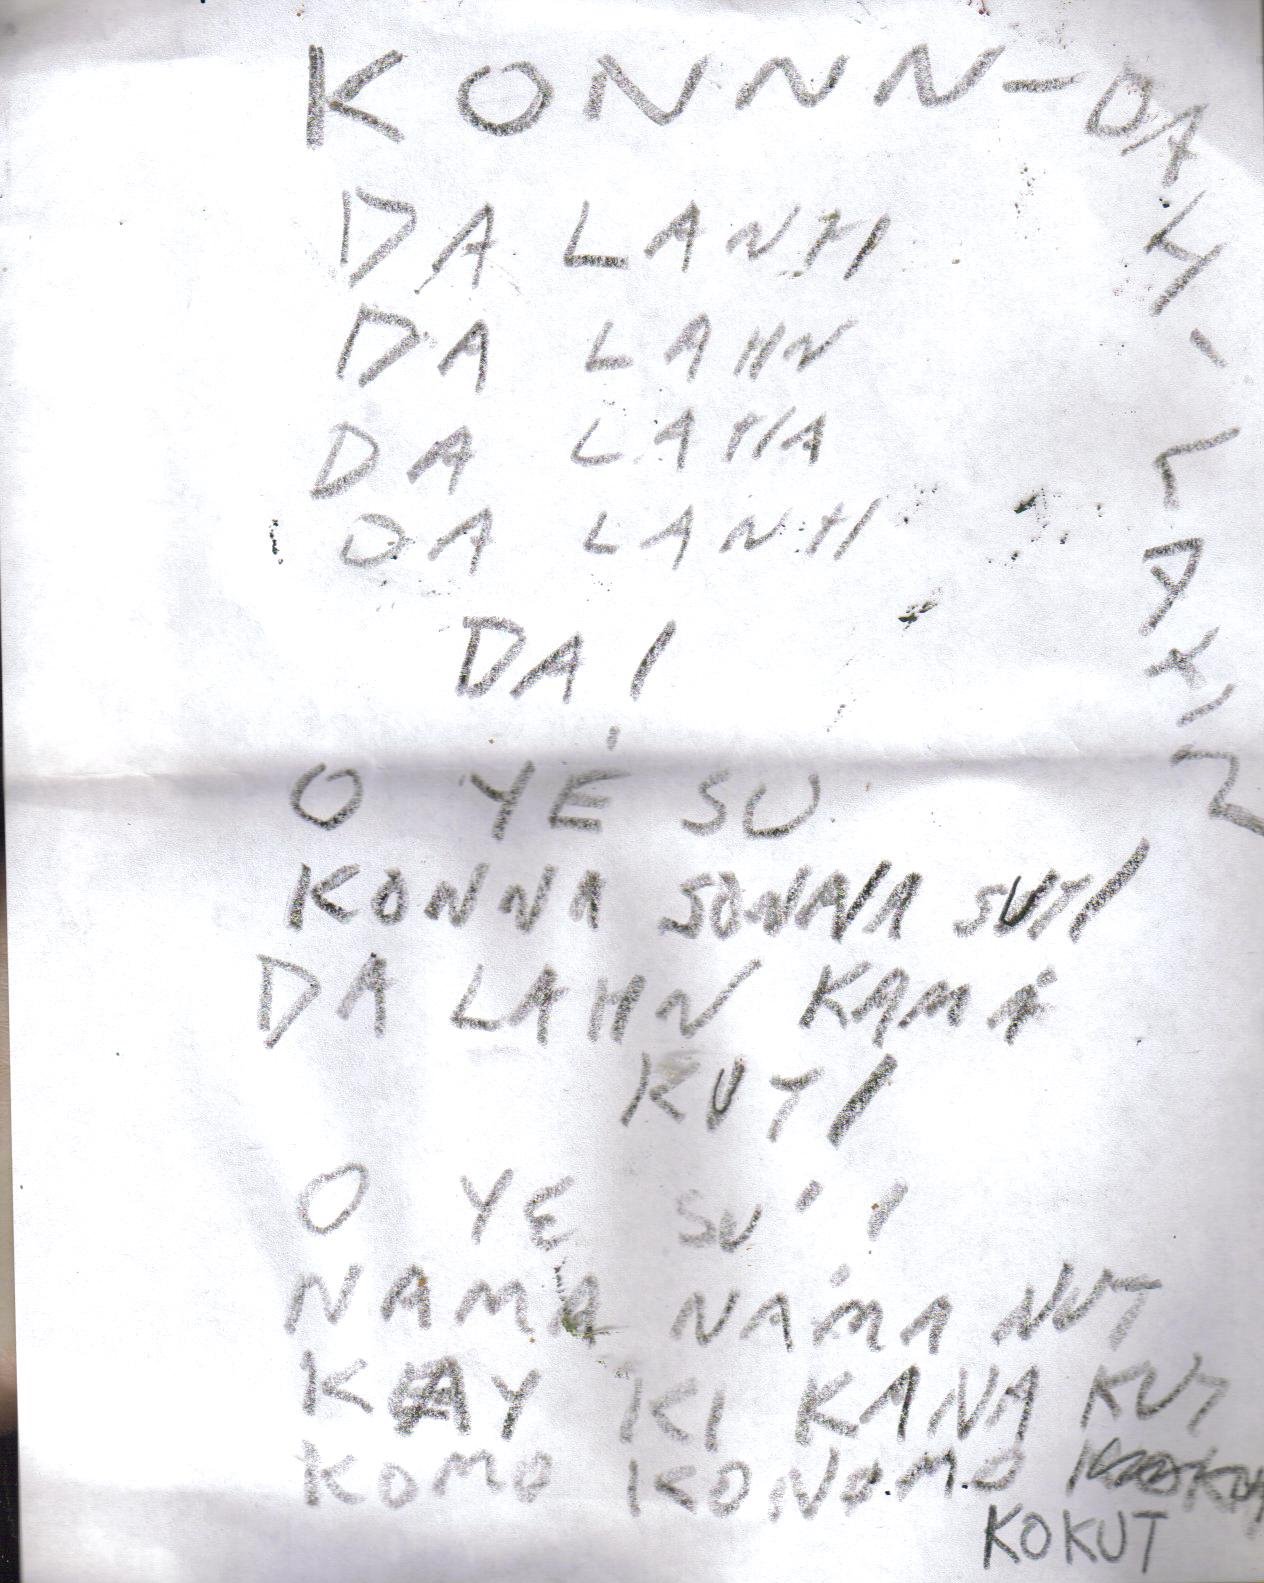 KONNN-DAH-LAHN
DA LANH
DA LAHN
DA LAHA
DA LANH
DA!
O YÉ SU
KONNA SONAHA SUTI
DA LAHN KAMA
KUTI
O YE SU'!
NAMA NAMA NUT
KAY KI KANA KUT
KOMO KONOMO
KOKUT